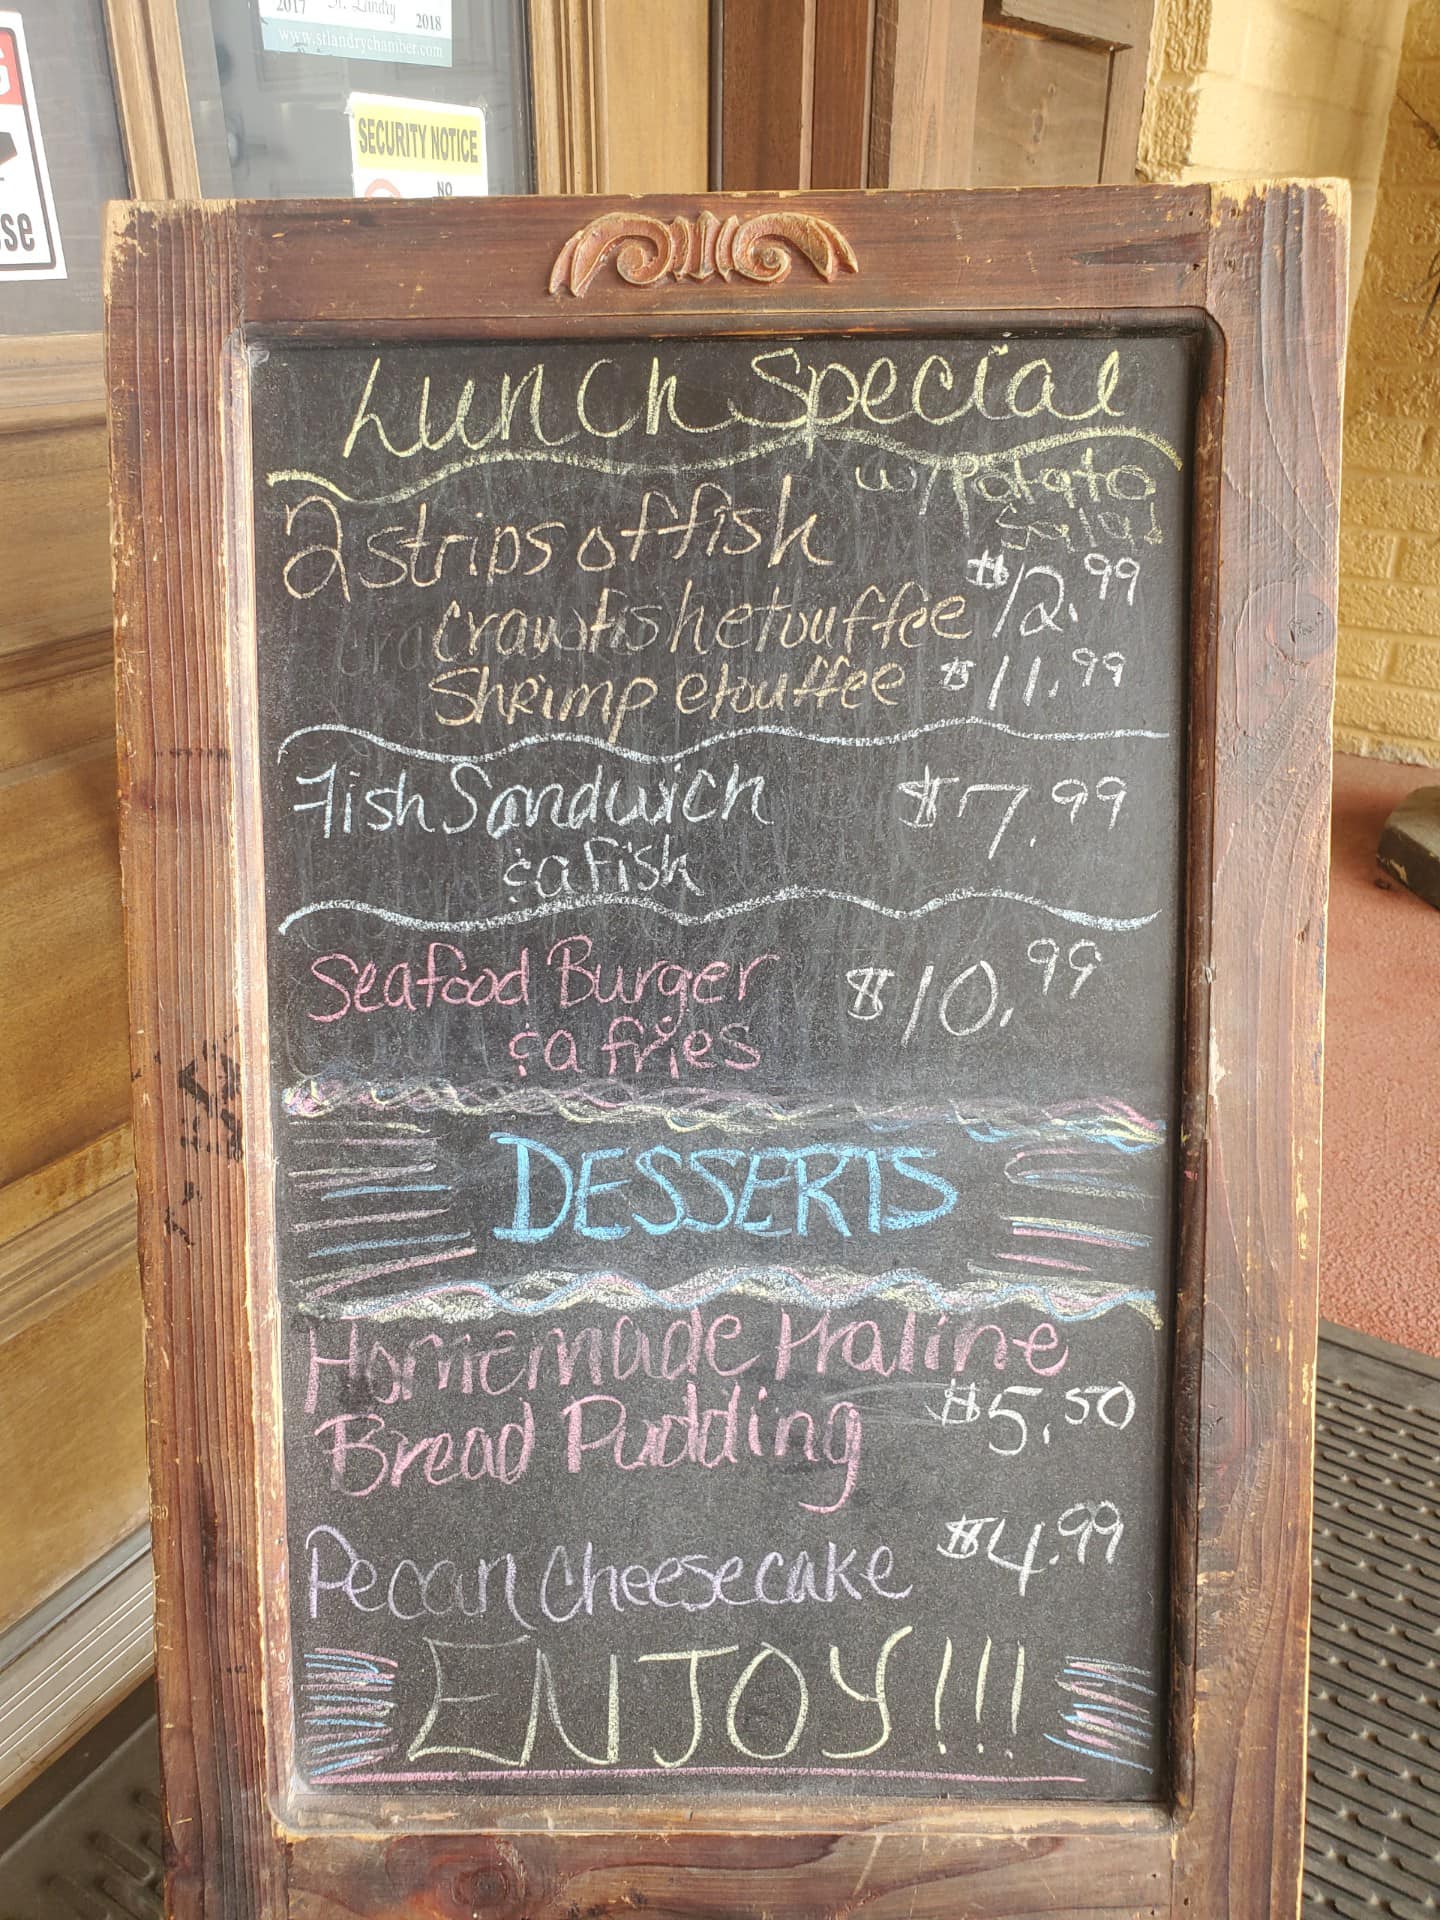 2017 St. Landry 2018
www.stlandrychamber.com
SECURITY NOTICE
NO
se
Lunch Special
w/Potato
Salad
2 strips of fish
crawfish etouffee $12.99
Shrimp etouffee $11.99
Fish Sandwich $7.99
& a fish
Seafood Burger $10.99
& a fries
DESSERTS
Homemade Praline
Bread Pudding $5.50
Pecan cheesecake $4.99
ENJOY!!!